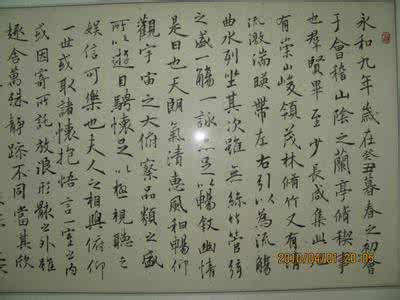 永和九年歲在癸丑暮春之初會
于會稽山陰之蘭亭脩稧事
也群賢畢至少長咸集此
有崇山峻領茂林脩竹又有清
流激湍暎帶左右引以為流觴
曲水列坐其次雖無絲竹管弦
之盛一觴一詠亦足以暢敘幽情
是日也天朗氣清惠風和暢仰
觀宇宙之大俯察品類之盛
所以遊目騁懷足以極視聽之
娛信可樂也夫人之相與俯仰
一世或取諸懷抱悟言一室之內
或因寄所託放浪形骸之外雖
趣舍萬殊靜躁不同當其欣
2010/04/01 20:06